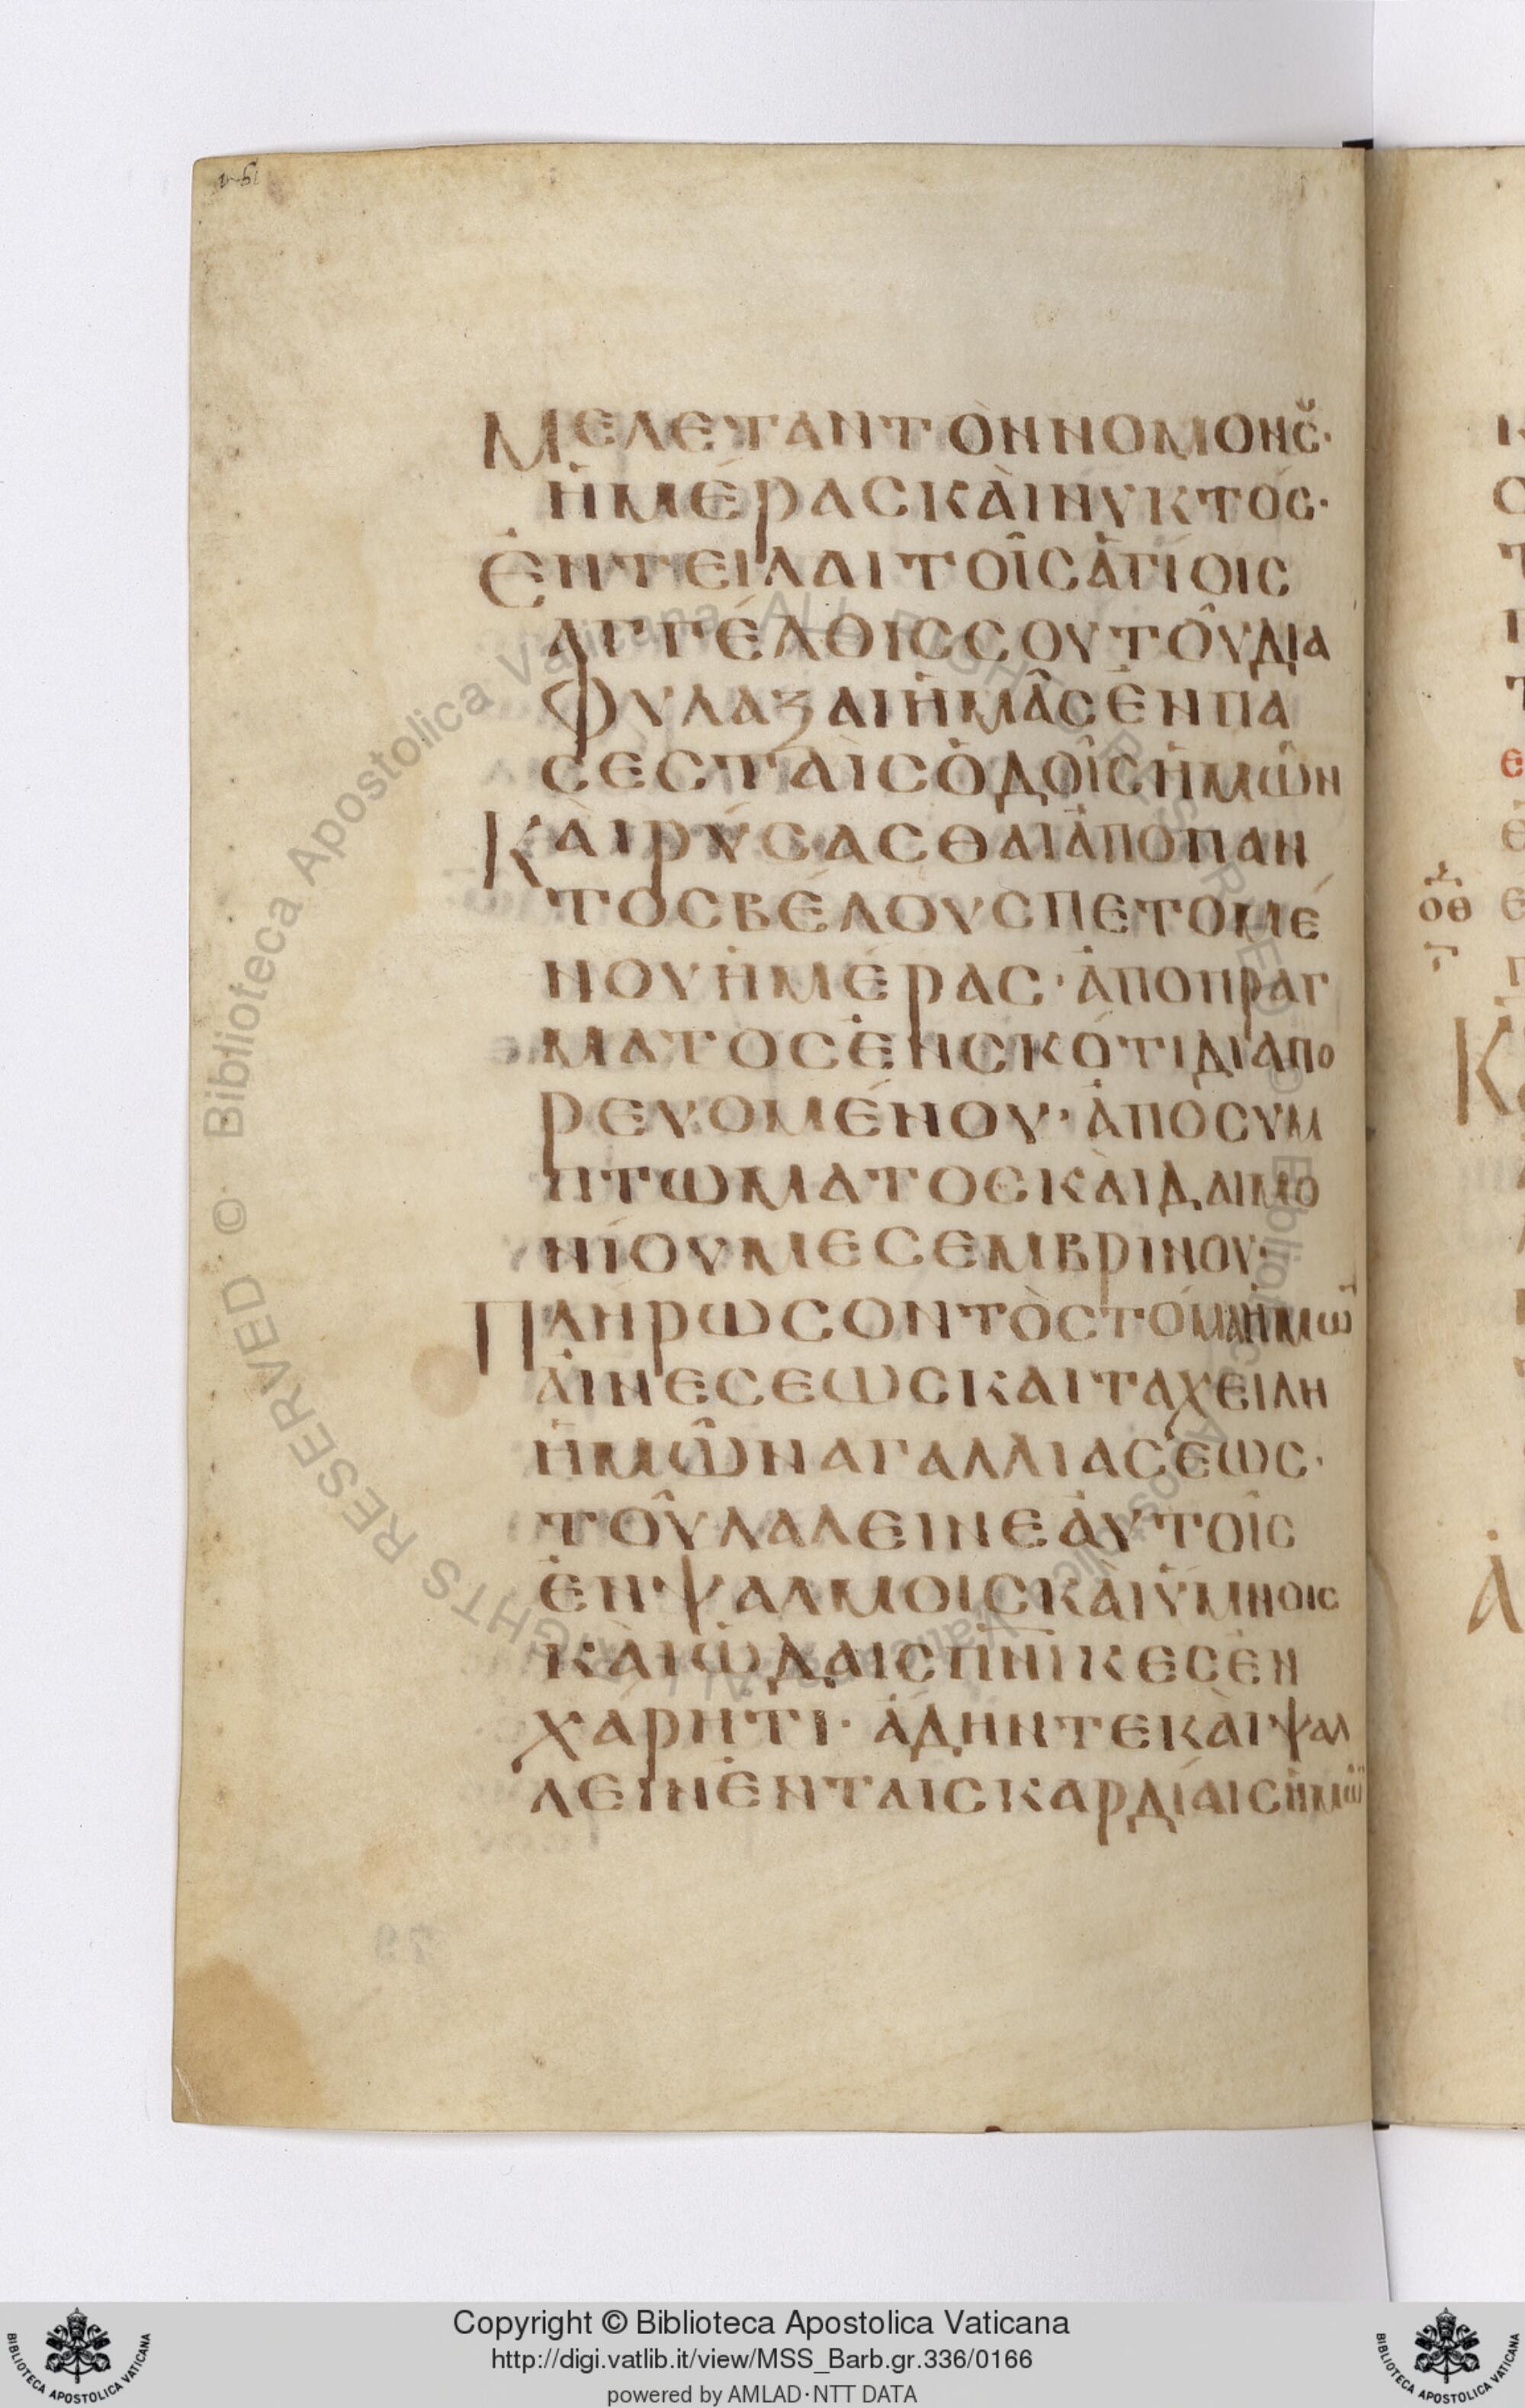 ΜΕΛΕΤΑΝΤΟΝΝΟΜΟΝΣȣ·
ἩΜΈΡΑΣΚΑῚΝΥΚΤΌΣ·
ἘΝΤΕΙΛΑΙΤΟΙ͂ΣἉΓΊΟΙΣ
ΑΓΓΈΛΟΙΣΣΟΥΤΟΥ͂ΔΙΑ
ΦΥΛΑΞΑΙἩΜΑ͂ΣἘΝΠΑ
ΣΕΣΤΑῚΣὉΔΟΙ͂ΣἩΜΩ͂Ν
ΚΑῚΡΎΣΑΣΘΑΙἈΠΟΠΑΝ
ΤΟΣΒΈΛΟΥΣΠΕΤΟΜΈ
ΝΟΥἩΜΈΡΑΣ·ἈΠΟΠΡΑΓ
ΜΑΤΟΣἘΝΣΚΌΤΙΔΙΑΠΟ
ΡΕΥΟΜΈΝΟΥ·ἈΠΟΣΥΜ
ΠΤΩΜΑΤΟΣΚΑῚΔΑΙΜΟ
ΝΊΟΥΜΕΣΕΜΒΡΙΝΟΥ·
ΠΛΗΡΩΣΟΝΤῸΣΤΌΜΑἩΜΩ͂
ἈΙΝΕΣΕΩΣΚΑΙΤΑΧΕΙΛΗ
ἩΜΩ͂ΝΑΓΑΛΛΙΑΣΕΩΣ·
ΤΟΥ͂ΛΑΛΕΙΝΕΑΥΤΟΙ͂Σ
ἘΝΨΑΛΜΟΙΣΚΑΙὙΜΝΟΙΣ
ΚΑῚὨΔΑΙΣΠΝΙΚΕΣἘΝ
ΧΆΡΗΤΙ·ἌΔΗΝΤΕΚΑῚΨΑΛ
ΛΕΙΝἘΝΤΑΙΣΚΑΡΔΊΑΙΣἩΜΩ͂
Copyright © Biblioteca Apostolica Vaticana
http://digi.vatlib.it/view/MSS_Barb.gr.336/0166
powered by AMLAD·NTT DATA